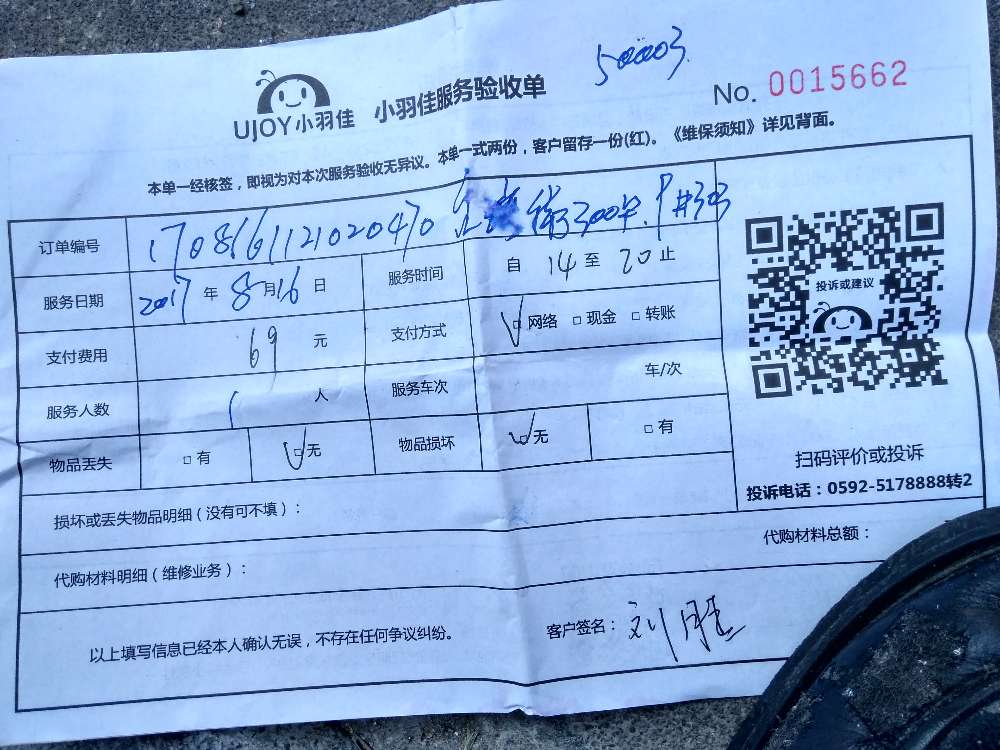 500003
UJOY小羽佳 小羽佳服务验收单
No. 0015662
本单一经核签，即视为对本次服务验收无异议。本单一式两份，客户留存一份(红)。《维保须知》详见背面。
订单编号 1708161121020470
服务日期 2017 年 8 月 16 日 服务时间 自 14 至 20 止
支付费用 69 元 支付方式 ☑网络 □现金 □转账
服务人数 1 人 服务车次 车/次
物品丢失 □有 ☑无 物品损坏 ☑无 □有
投诉或建议
扫码评价或投诉
投诉电话：0592-5178888转2
损坏或丢失物品明细（没有可不填）：
代购材料明细（维修业务）： 代购材料总额：
以上填写信息已经本人确认无误，不存在任何争议纠纷。 客户签名：刘胜